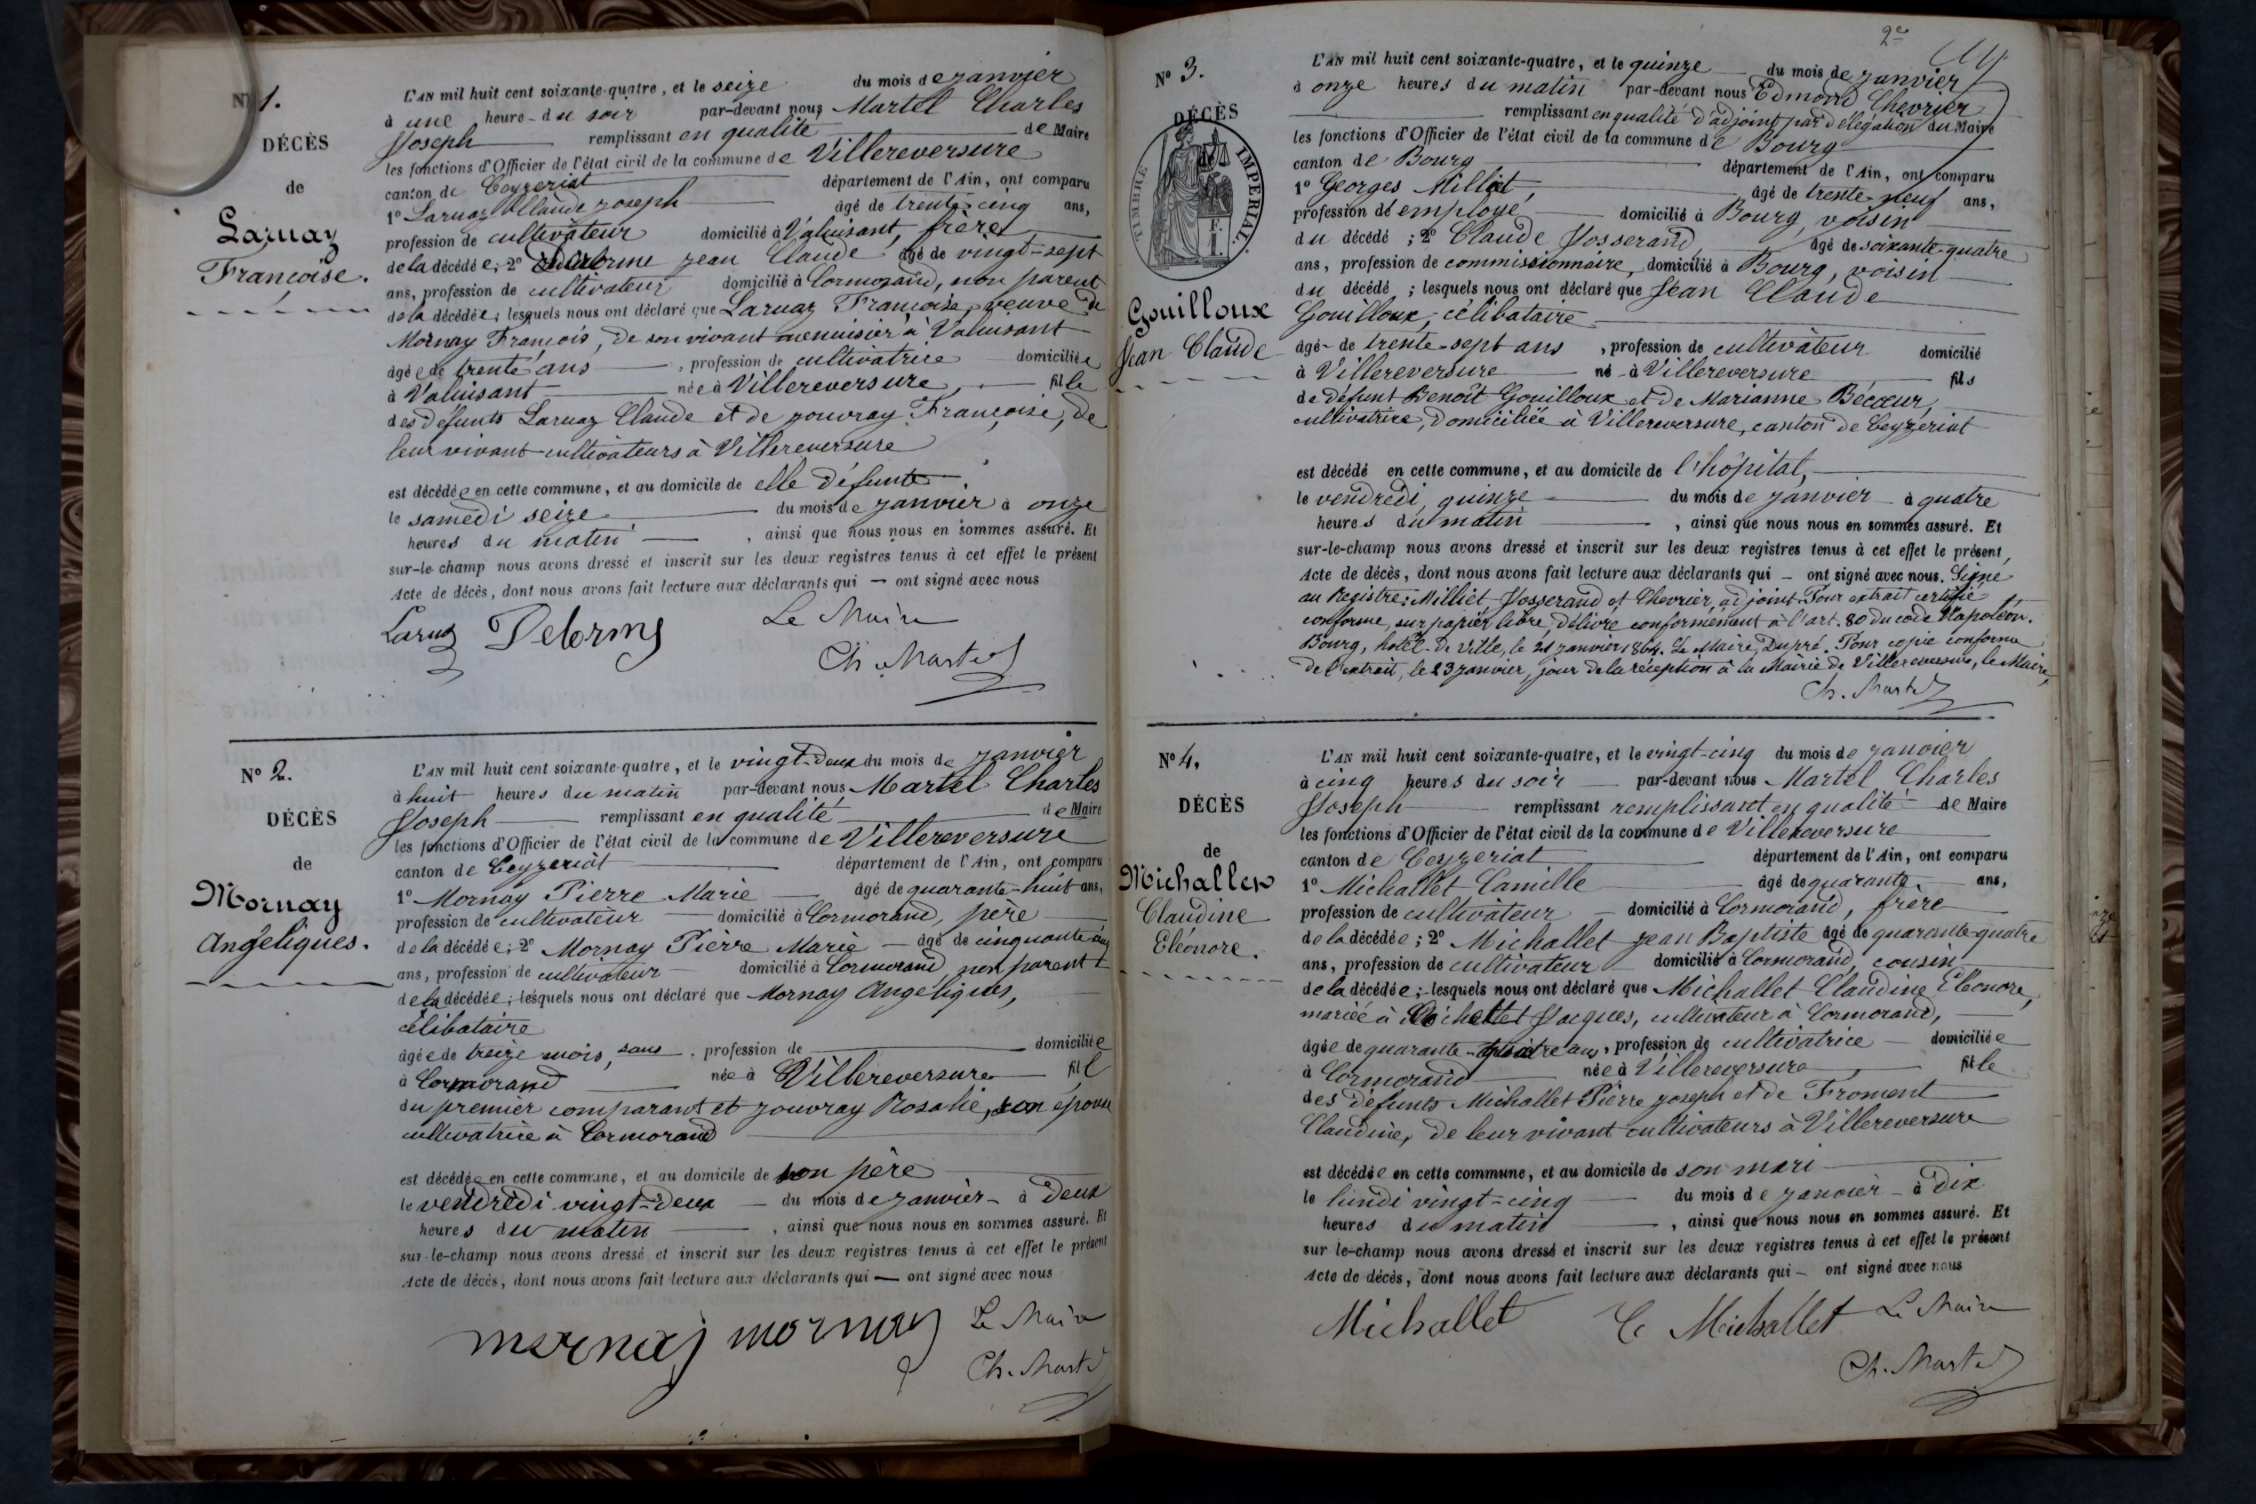 N° 1.
DÉCÈS
de
Laruaz
Françoise.
L'AN mil huit cent soixante-quatre, et le seize du mois de janvier
à une heure du soir par-devant nous Martel Charles
Joseph remplissant en qualité de Maire
les fonctions d'Officier de l'état civil de la commune de Villereversure
canton de Ceyzeriat département de l'Ain, ont comparu
1° Laruaz Claude joseph âgé de trente-cinq ans,
profession de cultivateur domicilié à Valuisant, frère
de la décédée; 2° Delorme jean Claude âgé de vingt-sept
ans, profession de cultivateur domicilié à Cormorand, non parent
de la décédée; lesquels nous ont déclaré que Laruaz Françoise, veuve de
Mornay François, de son vivant menuisier à Valuisant
âgée de trente ans, profession de cultivatrice domiciliée
à Valuisant née à Villereversure, fille
des défunts Laruaz Claude et de jouvray Françoise, de
leur vivant cultivateurs à Villereversure
est décédée en cette commune, et au domicile de elle défunte
le samedi seize du mois de janvier à onze
heures du matin, ainsi que nous nous en sommes assuré. Et
sur-le champ nous avons dressé et inscrit sur les deux registres tenus à cet effet le présent
Acte de décès, dont nous avons fait lecture aux déclarants qui — ont signé avec nous
Laruaz Delorme Le Maire
Ch. Martel
N° 2.
DÉCÈS
de
Mornay
Angéliques.
L'AN mil huit cent soixante-quatre, et le vingt-deux du mois de janvier
à huit heures du matin par-devant nous Martel Charles
Joseph remplissant en qualité de Maire
les fonctions d'Officier de l'état civil de la commune de Villereversure
canton de Ceyzeriat département de l'Ain, ont comparu
1° Mornay Pierre Marie âgé de quarante-huit ans,
profession de cultivateur domicilié à Cormorand, père
de la décédée; 2° Mornay Pierre Marie âgé de cinquante-cinq
ans, profession de cultivateur domicilié à Cormorand, non parent
de la décédée; lesquels nous ont déclaré que Mornay Angéliques,
célibataire
âgée de treize mois, sans profession de domiciliée
à Cormorand née à Villereversure fille
du premier comparant et jouvray Rosalie, son épouse
cultivatrice à Cormorand
est décédée en cette commune, et au domicile de son père
le vendredi vingt-deux du mois de janvier à deux
heures du matin, ainsi que nous nous en sommes assuré. Et
sur-le-champ nous avons dressé et inscrit sur les deux registres tenus à cet effet le présent
Acte de décès, dont nous avons fait lecture aux déclarants qui — ont signé avec nous
mornay mornay Le Maire
Ch. Martel
2e
N° 3.
DÉCÈS
TIMBRE IMPERIAL.
Gouilloux
Jean Claude
L'AN mil huit cent soixante-quatre, et le quinze du mois de janvier
à onze heures du matin par-devant nous Edmond Chevrier
remplissant en qualité d'adjoint par délégation du Maire
les fonctions d'Officier de l'état civil de la commune de Bourg
canton de Bourg département de l'Ain, ont comparu
1° Georges Milliet, âgé de trente-neuf ans,
profession d'employé, domicilié à Bourg, voisin
du décédé; 2° Claude Josserand, âgé de soixante-quatre
ans, profession de commissionnaire, domicilié à Bourg, voisin
du décédé; lesquels nous ont déclaré que Jean Claude
Gouilloux, célibataire
âgé de trente-sept ans, profession de cultivateur domicilié
à Villereversure né à Villereversure fils
de défunt Benoît Gouilloux et de Marianne Bécœur,
cultivatrice, domiciliée à Villereversure, canton de Ceyzeriat
est décédé en cette commune, et au domicile de l'hôpital,
le vendredi, quinze du mois de janvier à quatre
heures du matin, ainsi que nous nous en sommes assuré. Et
sur-le-champ nous avons dressé et inscrit sur les deux registres tenus à cet effet le présent,
Acte de décès, dont nous avons fait lecture aux déclarants qui — ont signé avec nous. Signé
au Registre: Milliet, Josserand et Chevrier, adjoint. Pour extrait certifié
conforme, sur papier libre, délivré conformément à l'art. 80 du code Napoléon.
Bourg, hôtel-de-ville, le 21 janvier 1864. Le Maire, Dupré. Pour copie conforme
de l'extrait, le 23 janvier, jour de la réception à la Mairie de Villereversure, le Maire,
Ch. Martel
N° 4.
DÉCÈS
de
Michallet
Claudine
Eléonore.
L'AN mil huit cent soixante-quatre, et le vingt-cinq du mois de janvier
à cinq heures du soir par-devant nous Martel Charles
Joseph remplissant remplissant en qualité de Maire
les fonctions d'Officier de l'état civil de la commune de Villereversure
canton de Ceyzeriat département de l'Ain, ont comparu
1° Michallet Camille âgé de quarante ans,
profession de cultivateur domicilié à Cormorand, frère
de la décédée; 2° Michallet jean Baptiste âgé de quarante-quatre
ans, profession de cultivateur domicilié à Cormorand, cousin
de la décédée; lesquels nous ont déclaré que Michallet Claudine Eléonore,
mariée à Michallet Jacques, cultivateur à Cormorand,
âgée de quarante-quatre ans, profession de cultivatrice domiciliée
à Cormorand née à Villereversure, fille
des défunts Michallet Pierre joseph et de Froment
Claudine, de leur vivant cultivateurs à Villereversure
est décédée en cette commune, et au domicile de son mari
le lundi vingt-cinq du mois de janvier à dix
heures du matin, ainsi que nous nous en sommes assuré. Et
sur-le-champ nous avons dressé et inscrit sur les deux registres tenus à cet effet le présent
Acte de décès, dont nous avons fait lecture aux déclarants qui — ont signé avec nous
Michallet C Michallet Le Maire
Ch. Martel